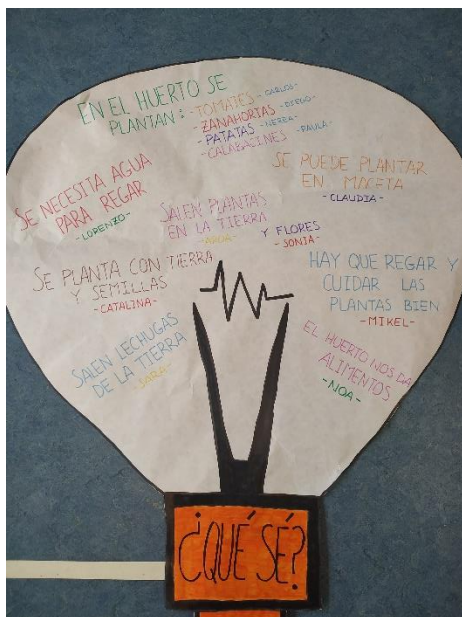 EN EL HUERTO SE
PLANTAN: -TOMATES -CARLOS-
-ZANAHORIAS -DIEGO-
-PATATAS -NEREA-
-CALABACINES -PAULA-
SE PUEDE PLANTAR
EN MACETA
-CLAUDIA-
SE NECESITA AGUA
PARA REGAR
-LORENZO-
SALEN PLANTAS
EN LA TIERRA
Y FLORES
-SONIA-
SE PLANTA CON TIERRA
Y SEMILLAS
-CATALINA-
HAY QUE REGAR Y
CUIDAR LAS
PLANTAS BIEN
-MIKEL-
SALEN LECHUGAS
DE LA TIERRA
-SARA-
EL HUERTO NOS DA
ALIMENTOS
-NOA-
¿QUÉ SÉ?